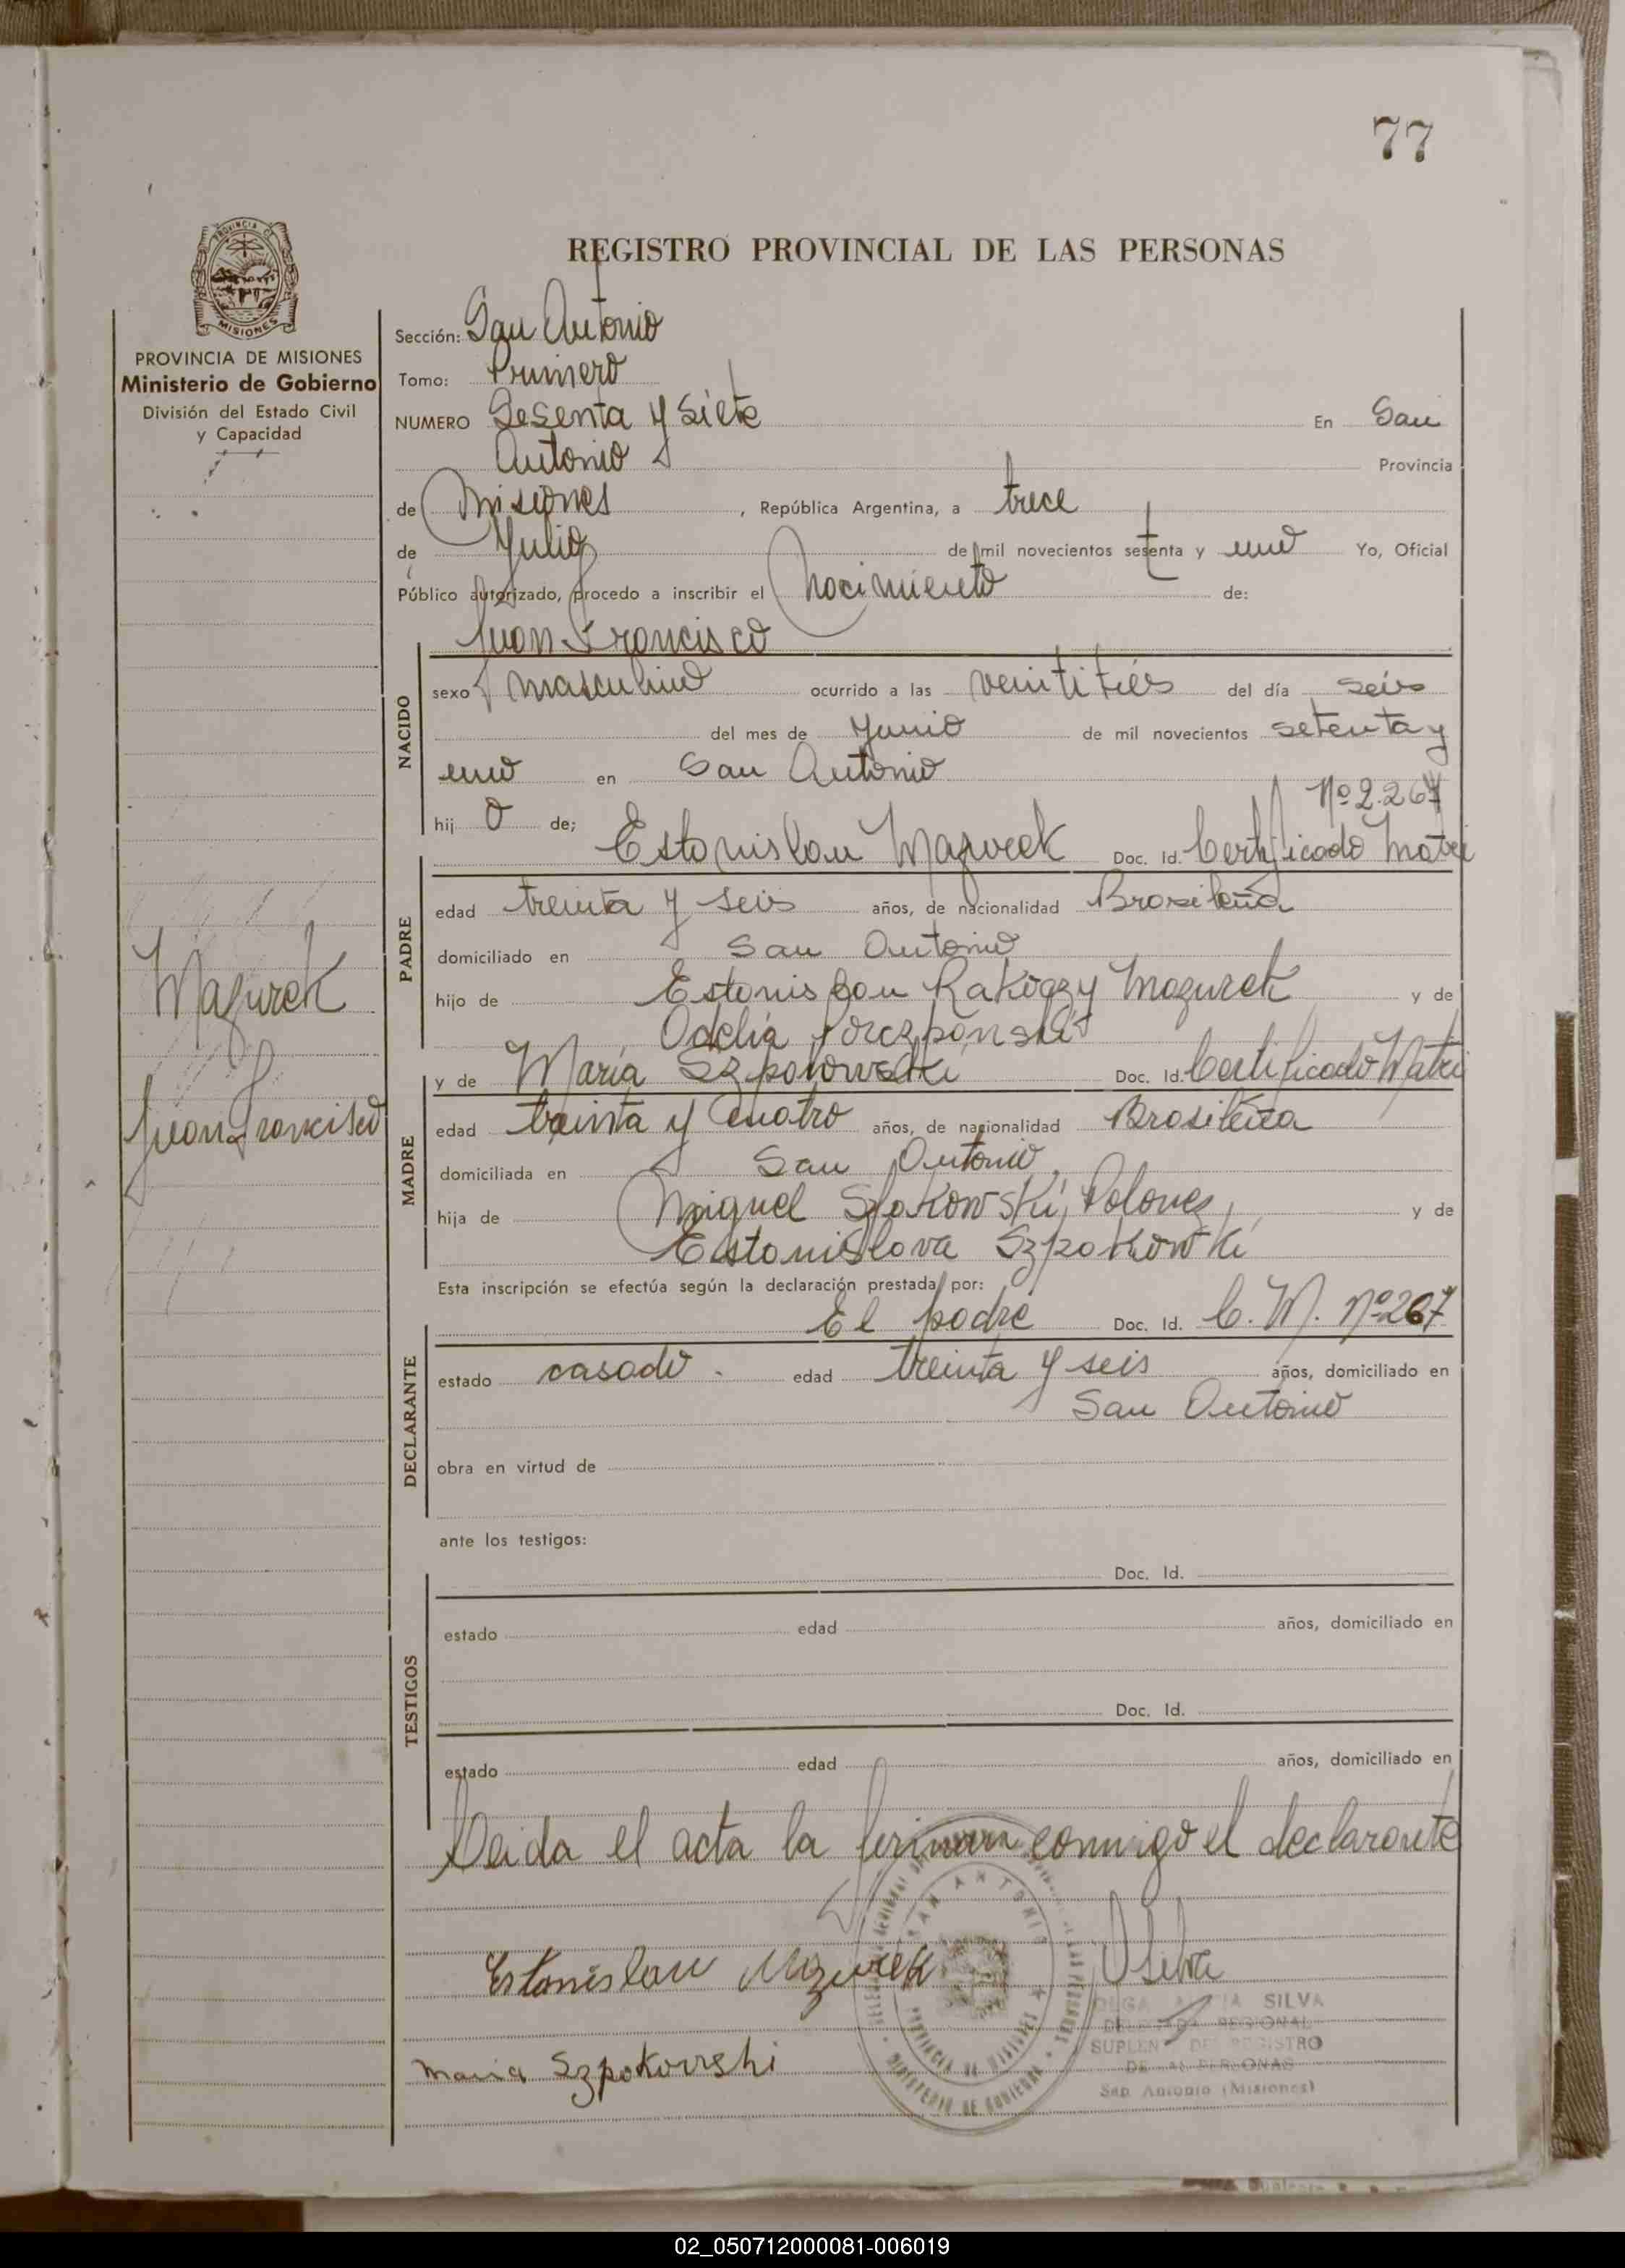 77
PROVINCIA DE MISIONES
REGISTRO PROVINCIAL DE LAS PERSONAS
PROVINCIA DE MISIONES
Ministerio de Gobierno
División del Estado Civil
y Capacidad
Sección: San Antonio
Tomo: Primero
NUMERO Sesenta y Siete En San
Antonio Provincia
de Misiones, República Argentina, a trece
de Julio de mil novecientos setenta y uno Yo, Oficial
Público autorizado, procedo a inscribir el Nacimiento de:
Juan Francisco
NACIDO
sexo masculino ocurrido a las veintitrés del día seis
del mes de Junio de mil novecientos setenta y
uno en San Antonio
Nº 2.267
hij o de; Estanislau Mazurek Doc. Id. Certificado Matri
PADRE
edad treinta y seis años, de nacionalidad Brasileña
domiciliado en San Antonio
hijo de Estanislau Mazurek y de
Odelia
y de María Doc. Id. Certificado Matri
MADRE
edad treinta y cuatro años, de nacionalidad Brasileña
domiciliada en San Antonio
hija de Miguel y de
Estanislava
Mazurek
Juan Francisco
Esta inscripción se efectúa según la declaración prestada por:
El padre Doc. Id. C. M. Nº 267
DECLARANTE
estado casado. edad treinta y seis años, domiciliado en
San Antonio
obra en virtud de
ante los testigos:
Doc. Id.
TESTIGOS
estado edad años, domiciliado en
Doc. Id.
estado edad años, domiciliado en
Leida el acta la firman conmigo el declarante
Estanislau Mazurek
OSilva
SAN ANTONIO
PROVINCIA DE MISIONES
MINISTERIO DE GOBIERNO
OLGA SILVA
DELEGADA REGIONAL
SUPLEN DEL REGISTRO
DE LAS PERSONAS
San Antonio (Misiones)
Maria Szpokovshi
02_050712000081-006019